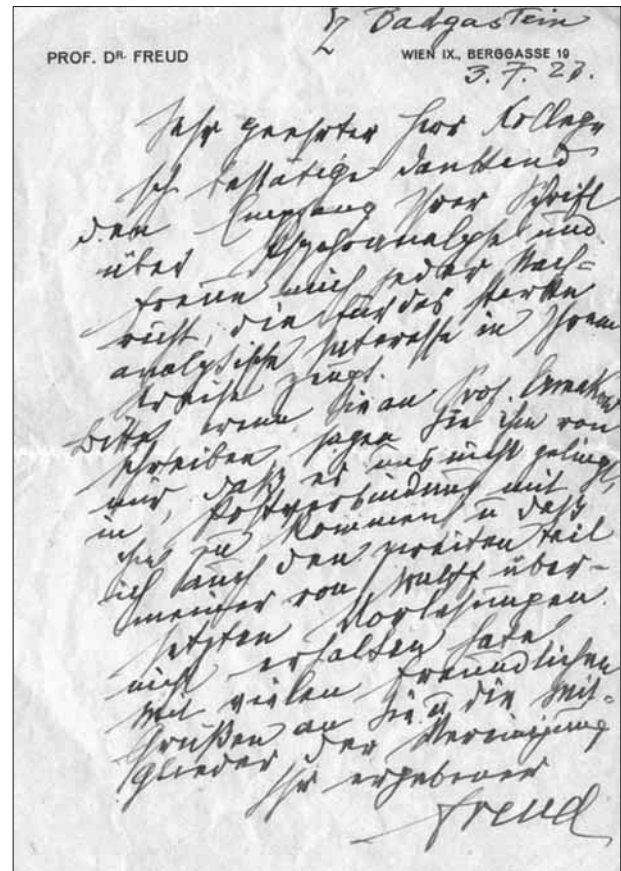 Z Badgastein
PROF. DR. FREUD
WIEN IX., BERGGASSE 19
3. 7. 23.
Sehr geehrter Herr Kollege
Ich bestätige dankend
den Empfang Ihrer Schrift
über Psychoanalyse und
freue mich jeder Nach-
richt, die für das starke
analytische Interesse in Ihrem
Kreise zeugt.
Bitte wenn Sie an Prof. Ermakow
schreiben sagen Sie ihm von
mir, daß es uns nicht gelingt,
in Postverbindung mit
ihm zu kommen u daß
ich auch den zweiten Teil
meiner von Wulff über-
setzten Vorlesungen
nicht erhalten habe
Mit vielen freundlichen
Grüßen an Sie u die Mit-
glieder der Vereinigung
Ihr ergebener
Freud